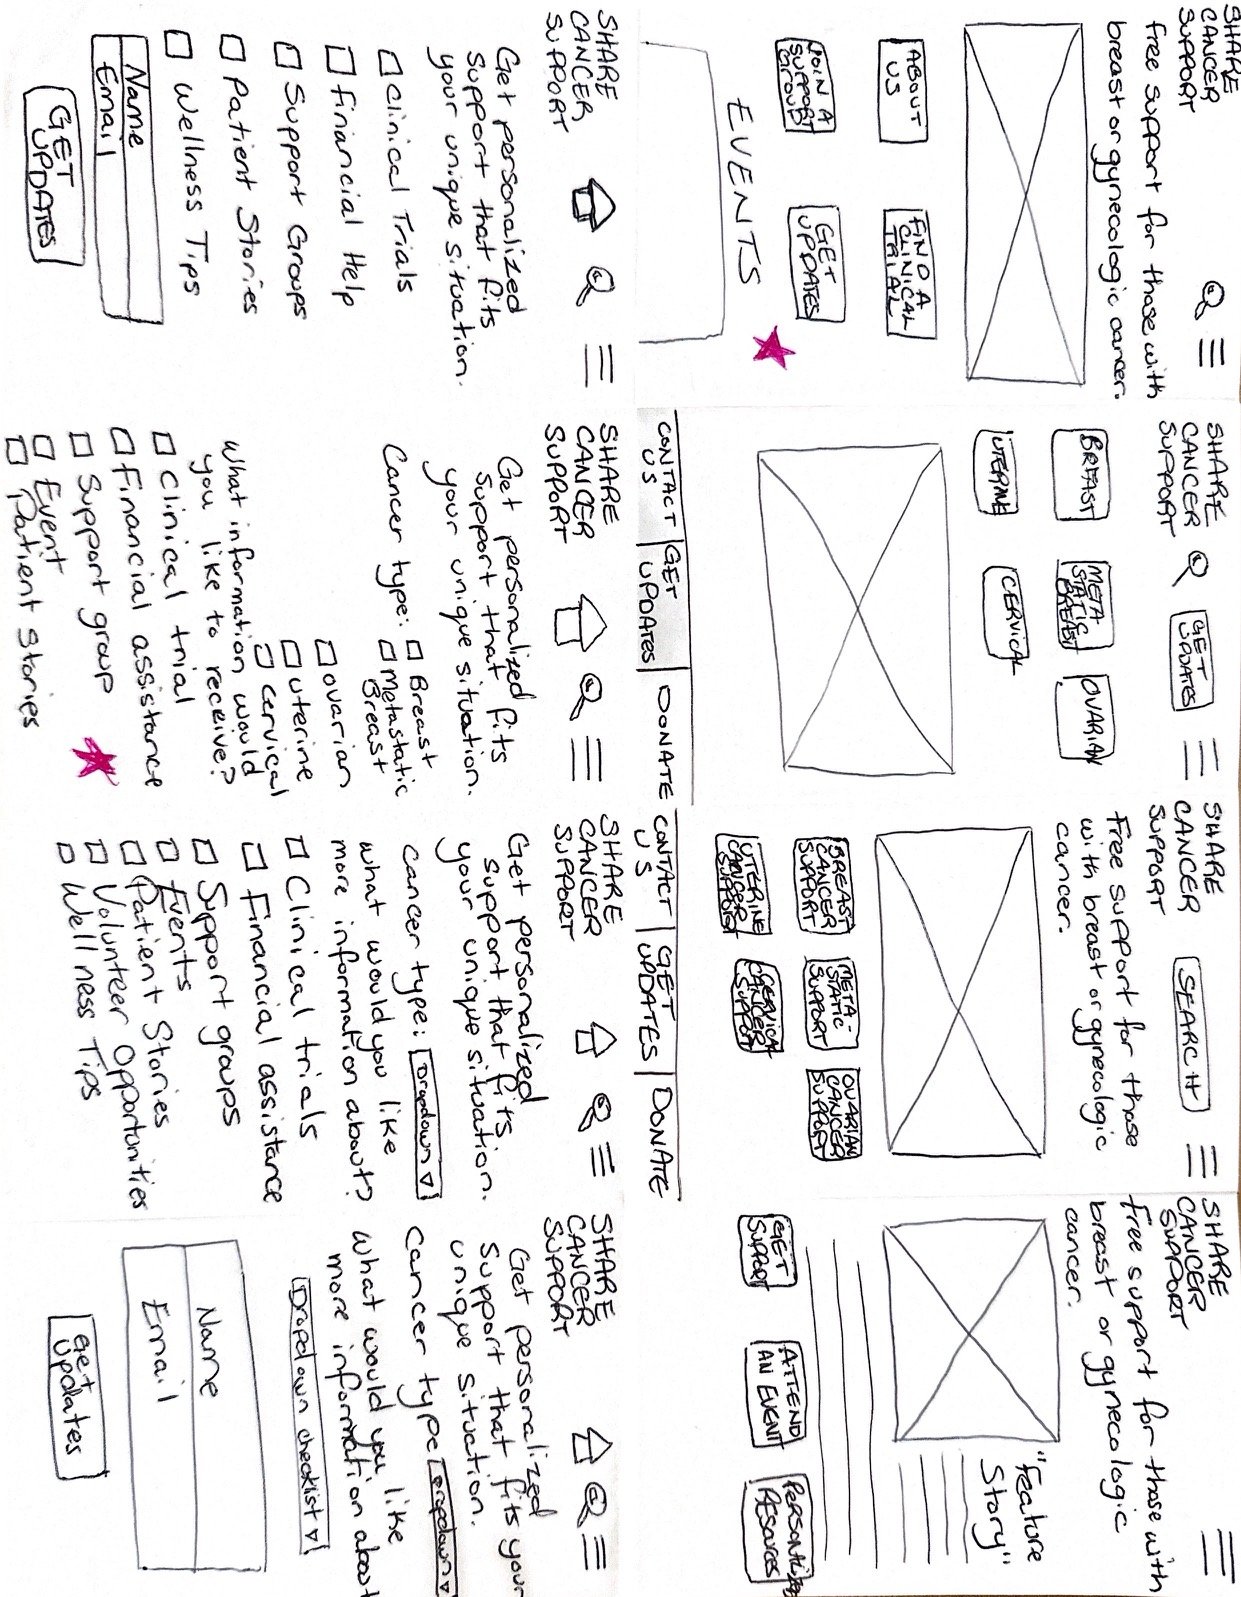 SHARE
CANCER
SUPPORT
Free support for those with
breast or gynecologic cancer.
ABOUT
US
FIND A
CLINICAL
TRIAL
JOIN A
SUPPORT
GROUP
GET
UPDATES
EVENTS
SHARE
CANCER
SUPPORT
GET
UPDATES
BREAST
META
STATIC
BREAST
OVARIAN
UTERINE
CERVICAL
CONTACT
US
GET
UPDATES
DONATE
SHARE
CANCER
SUPPORT
SEARCH
Free support for those
with breast or gynecologic
cancer.
BREAST
CANCER
SUPPORT
META-
STATIC
SUPPORT
OVARIAN
CANCER
SUPPORT
UTERINE
CANCER
SUPPORT
CERVICAL
CANCER
SUPPORT
CONTACT
US
GET
UPDATES
DONATE
SHARE
CANCER
SUPPORT
Free support for those with
breast or gynecologic
cancer.
"Feature
Story"
GET
SUPPORT
ATTEND
AN EVENT
SHARE
CANCER
SUPPORT
Get personalized
support that fits
your unique situation.
Clinical Trials
Finiancial Help
Support Groups
Patient Stories
Wellness Tips
Name
Email
GET
UPDATES
SHARE
CANCER
SUPPORT
Get personalized
support that fits
your unique situation.
Cancer type:
Breast
Metastatic
Breast
ovarian
uterine
cervical
What information would
you like to receive?
Clinical trial
Financial assistance
Support group
Event
Patient Stories
SHARE
CANCER
SUPPORT
Get personalized
support that fits
your unique situation.
cancer type: Dropdown
what would you like
more information about?
Clinical trials
Financial assistance
Support groups
Events
Patient Stories
Volunteer Opportunities
Wellness Tips
SHARE
CANCER
SUPPORT
Get personalized
support that fits your
unique situation.
Cancer type Dropdown
What would you like
more information about
Dropdown checklist
Name
Email
Get
Updates